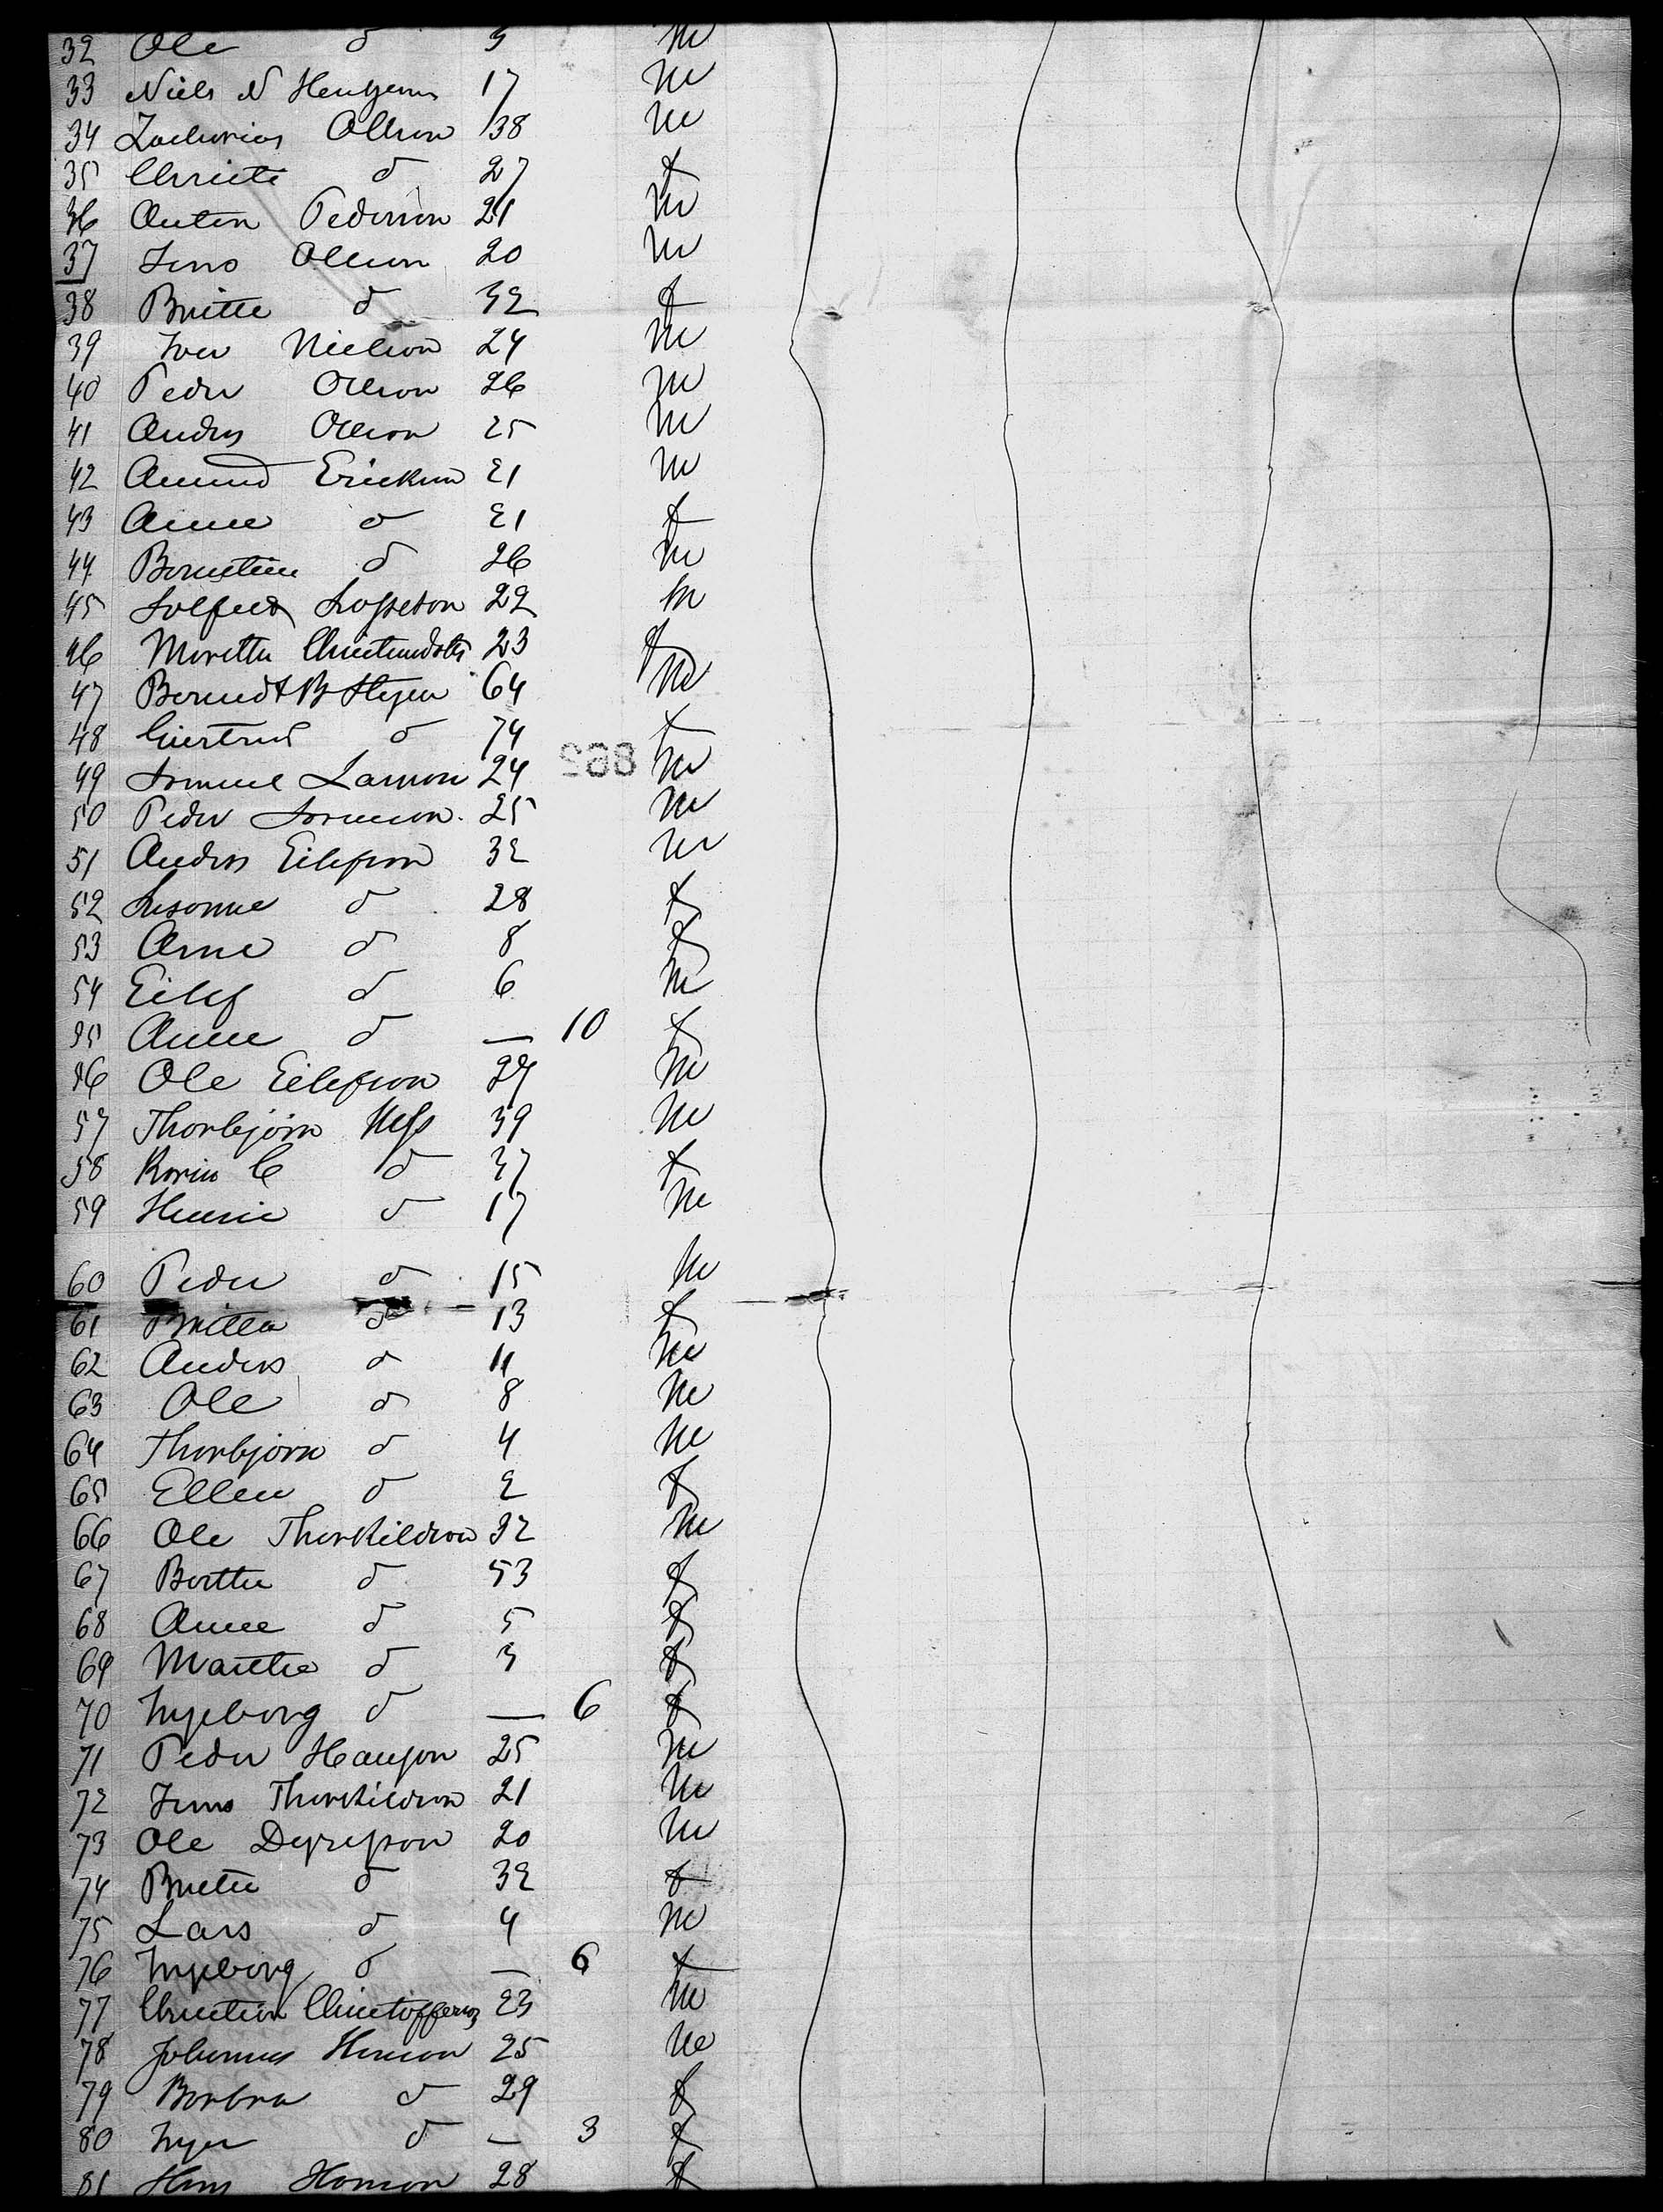 32 Ole d 3 m
33 Niels N 17 m
34 Zacharias Olson 38 m
35 Christi d 27 f
36 Anton Pederson 21 m
37 Jens Olson 20 m
38 Britte d 32 f
39 Iver Nielson 24 m
40 Peder Olson 26 m
41 Anders Olson 25 m
42 Amund Erickson 21 m
43 Anne d 21 f
44 d 26 m
45 22 m
46 Maretha 23 f
47 Berendt B 64 m
48 Giertrud d 74 f
49 Larson 24 m
862
50 Peder 25 m
51 Anders Eilefson 32 m
52 Susanne d 28 f
53 Arne d 8 f
54 Eilef d 6 m
55 Anne d — 10 f
56 Ole Eilefson m
57 Thorbjörn 39 m
58 Karin C d 37 f
59 d 17 m
60 Peder d 15 m
61 Britta d 13 f
62 Anders d 11 m
63 Ole d 8 m
64 Thorbjörn d 4 m
65 Ellen d 2 f
66 Ole Thorkildson 32 m
67 Berthe d f
68 Anne d 5 f
69 Marthe d 3 f
70 Ingeborg d — 6 f
71 Peder Hanson 25 m
72 Jens Thorkildson 21 m
73 Ole 20 m
74 Brithe d 32 f
75 Lars d 4 m
76 Ingeborg d — 6 f
77 Christian Christofferson 23 m
78 Johannes 25 m
79 Barbra d 29 f
80 Inger d — 3 f
81 Hans 28 f